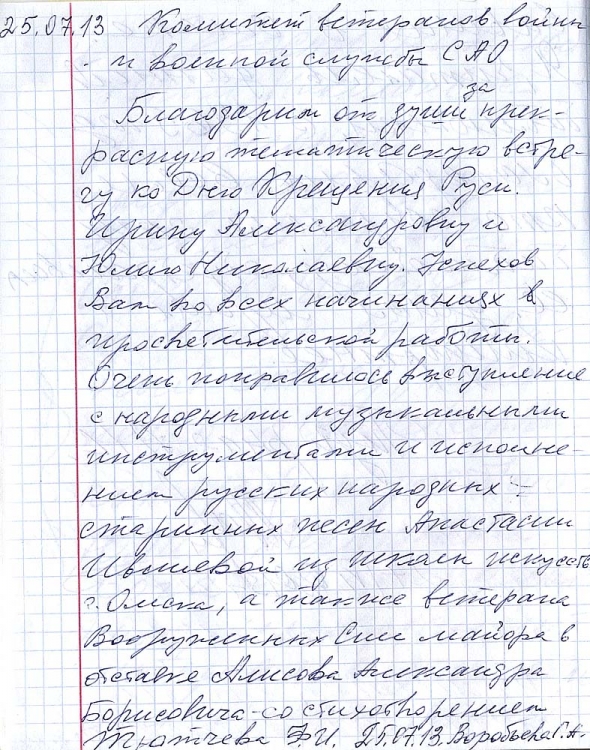 25.07.13 Комитет ветеранов войны
и военной службы САО
Благодарим от души за прек-
расную тематическую встре-
чу ко Дню Крещения Руси.
Ирину Александровну и
Юлию Николаевну. Успехов
Вам во всех начинаниях в
просветительской работы.
Очень понравилось выступление
с народными музыкальными
инструментами и исполне-
нием русских народных -
старинных песен Анастасии
из школы искусств
г. Омска, а также ветерана
Вооруженных Сил майора в
отставке Алисова Александра
Борисовича - со стихотворением
Тютчева Ф.И. 25.07.13. Воробьева Г.А.